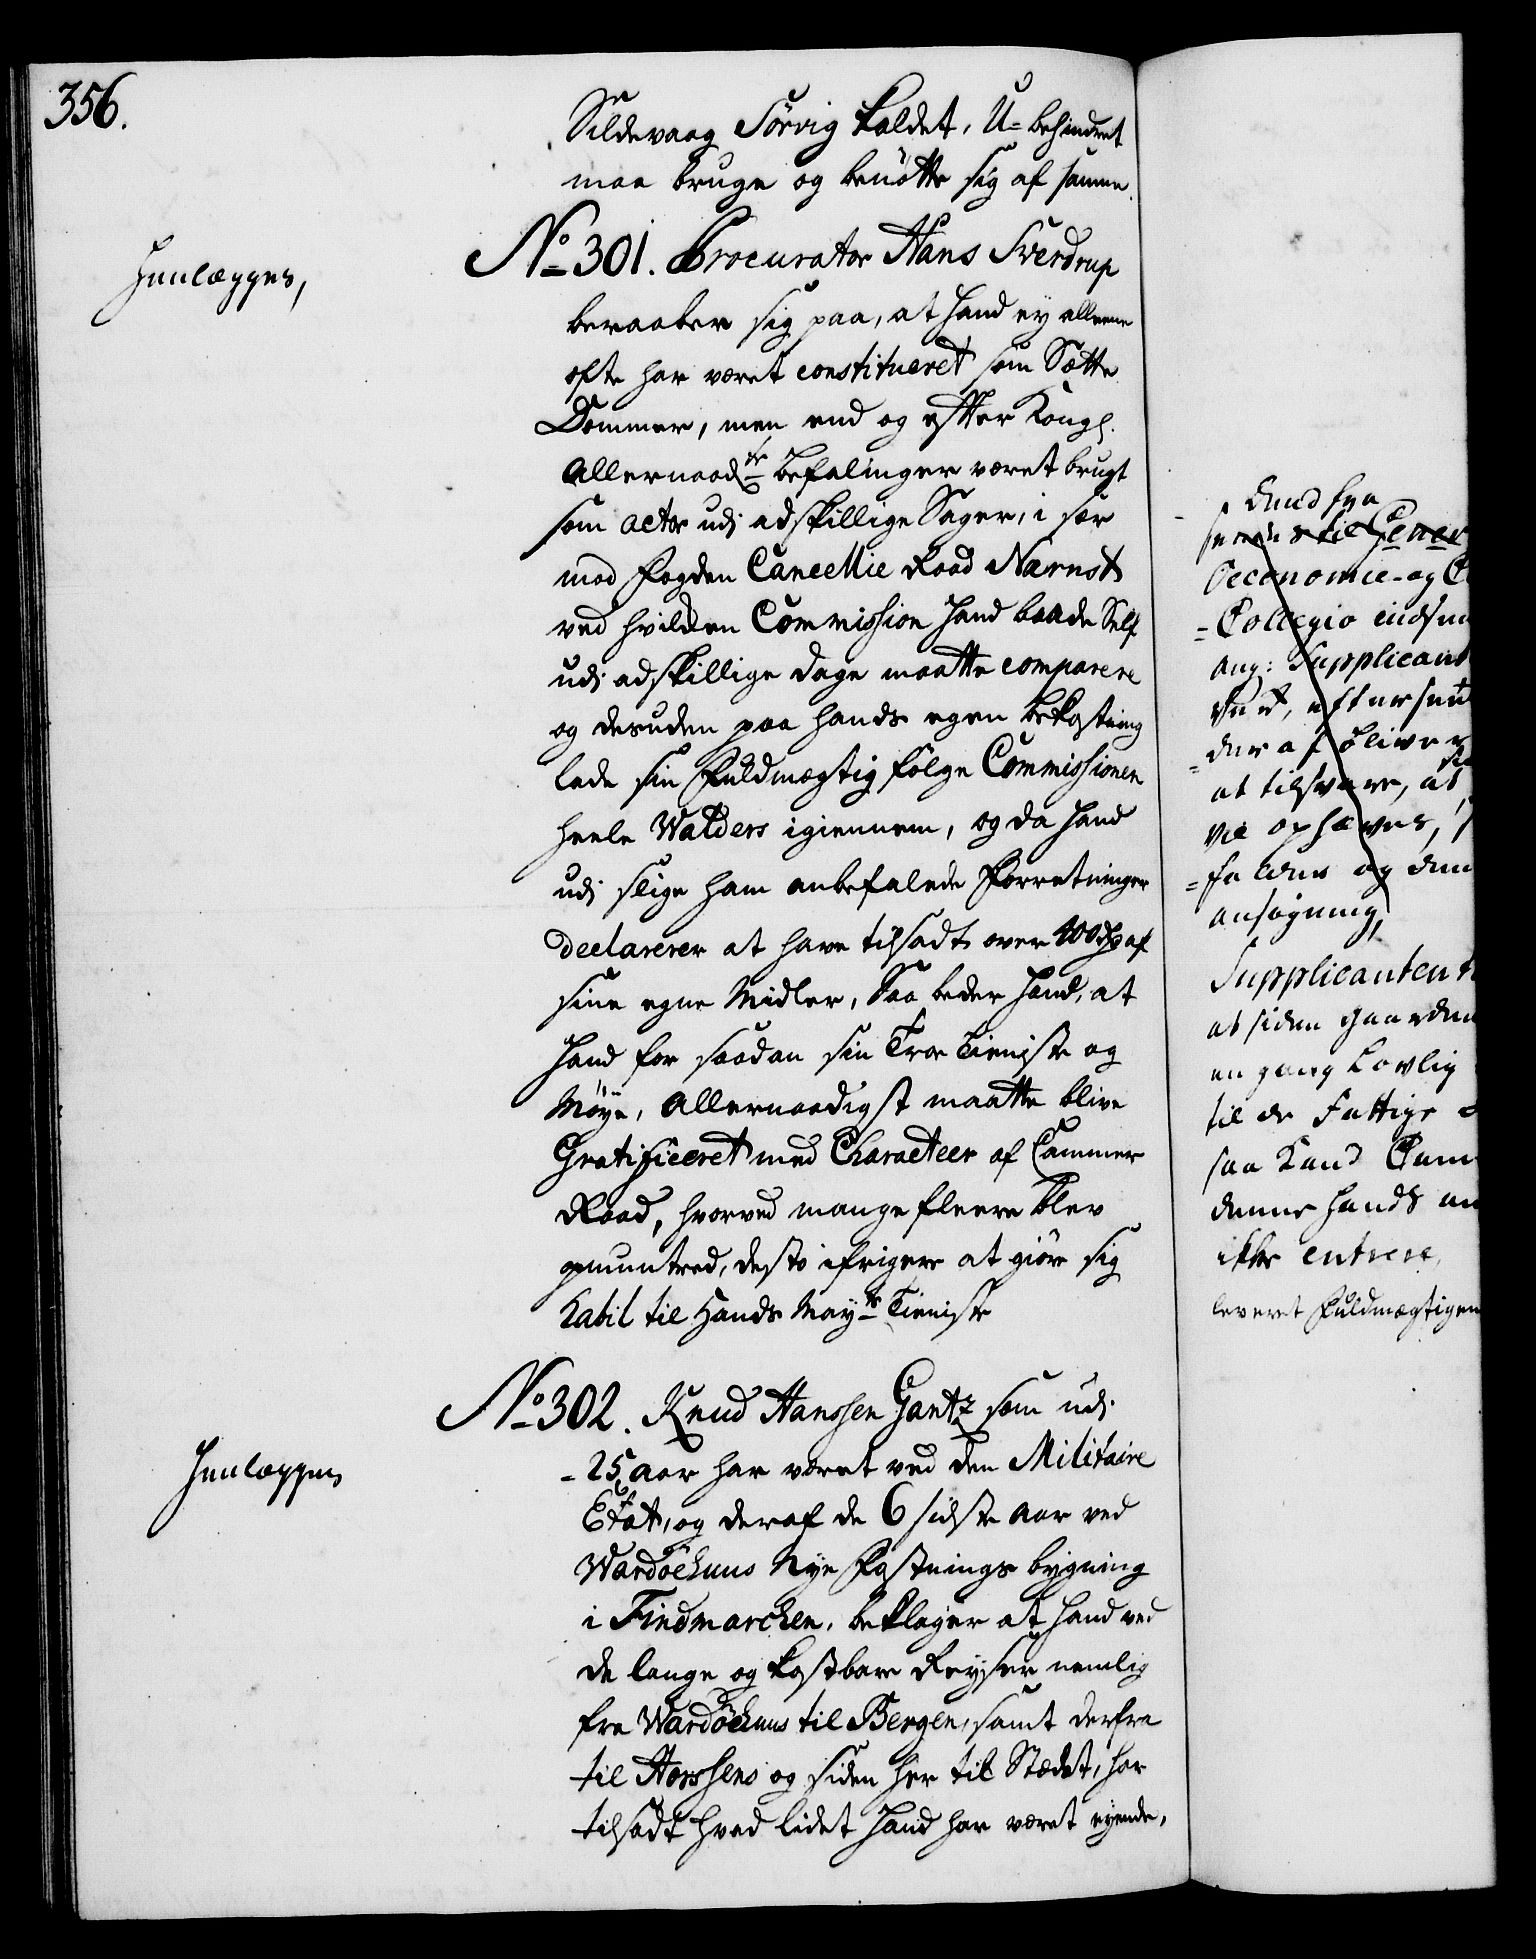 356.
Sildevaag Sörvig kaldet, U-behindret
maa bruge og benötte sig af samme.
Henlægges,
No 301. Procurator Hans Sverdrup
beraaber sig paa, at hand ey alleene
ofte har været constitueret som Sætte
Dommer, men end og efter Kongl.
Allernaadste befalinger været brugt
som actor udi adskillige Sager, i sær
mod Fogden Cancellie Raad Nærnst
ved hvilken Commission hand baade Self
udi adskillige dage maatte comparere
og desuden paa hands egen bekostning
lade sin Fuldmægtig fölge Commissionen
heele Walders igiennem, og da hand
udi slige ham anbefalede Forretninger
declarerer at have tilsadt over af
sine egne Midler, Saa beder hand, at
hand for saadan sin Troe Tieniste og
Möye, Allernaadigst maatte blive
Gratificeret med Characteer af Cammer
Raad, hvorved mange fleere blev
opmuntred, desto ifrigere at giöre sig
habil til Hands Mayts Tieniste
Henlægges
No 302. Knud Hanssen Gantz som udi
25 aar har været ved den Militaire
Etat, og deraf de 6 sidste aar ved
Wardöehuus Nye Fæstnings bygning
i Findmarchen, beklager at hand ved
de lange og kostbare Reyser nemlig
fra Wardöehuus til Bergen, samt derfra
til Horssens og siden her til Stædet, har
tilsadt hvad lidet hand har været eyende,
Oeconomie- og
Collegio indsen
ang: Supplicant
der af bliver
at tilsvare, at
ansögning,
Supplicanten
at siden gaarden
en gang Lovlig
til de Fattige
saa kand Cam
denne hands an
ikke entrere.
leveret Fuldmægtigen